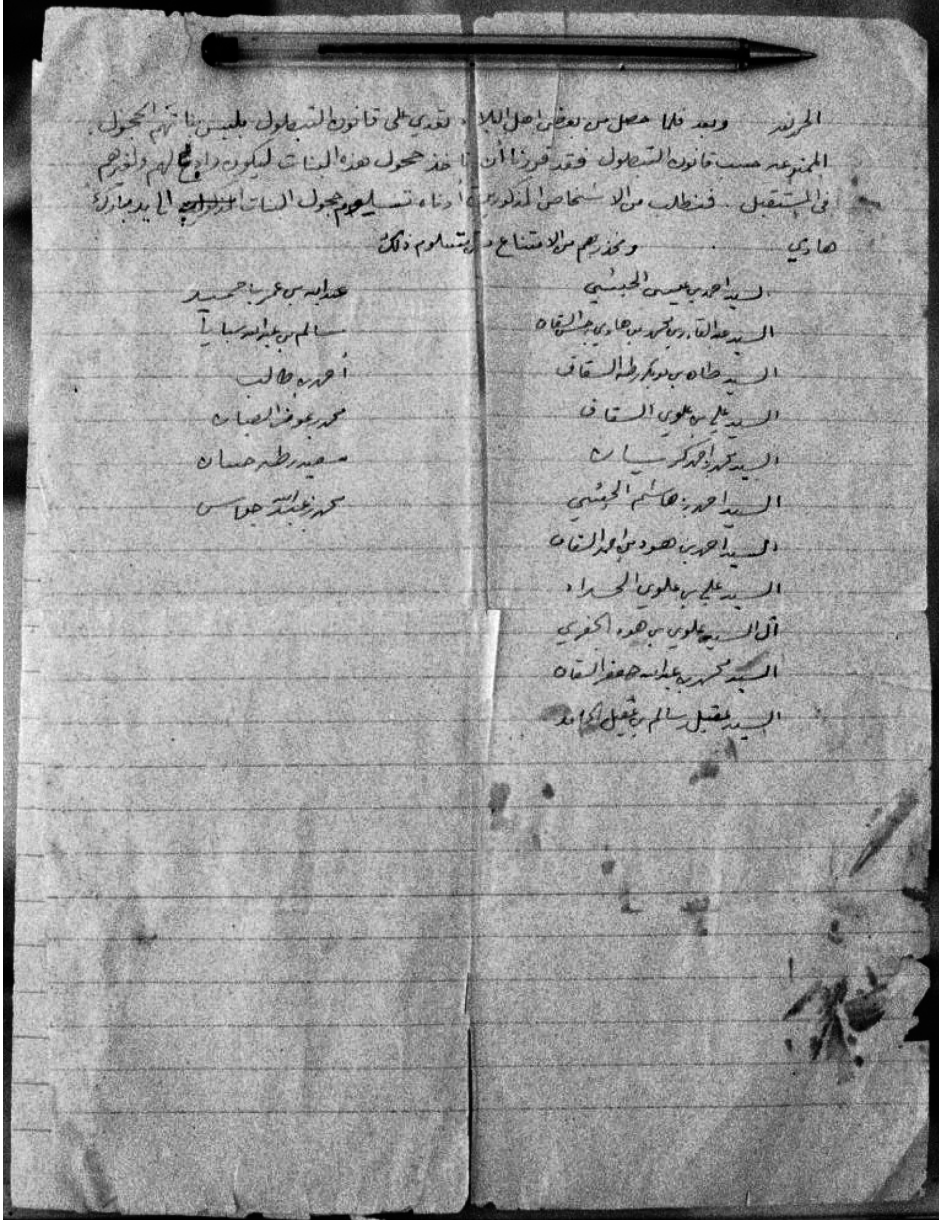 الحمد لله وبعد فلما حصل من بعض اهل البلاد تعدي على قانون التبطلول بلبس بناتهم الحجول
الممنوعه حسب قانون التبطلول فقد قررنا أن نأخذ حجول هذه البنات ليكون رادع لهم ولغيرهم
في المستقبل فنطلب من الاشخاص المذكورين أدناه تسليم حجول البنات الى يد مبارك
هادي ونحذرهم من الامتناع ذلك
السيد احمد بن عيسى الحبشي
السيد عبدالقادر بن محمد بن هادي السقاف
السيد طه بن بوبكر بن طه السقاف
السيد علي بن علوي السقاف
السيد محمد بن احمد
السيد احمد بن هاشم الحبشي
السيد احمد بن هود بن احمد السقاف
السيد علي بن علوي الحداد
آل السيد علوي بن هود الجفري
السيد محمد بن عبدالله جعفر السقاف
السيد عقيل بن سالم بن عقيل الحامد
عبدالله بن عمر باحميد
سالم بن عبدالله
أحمد طالب
محمد بن عوض الصبان
سعيد
محمد بن عبدالله جواس